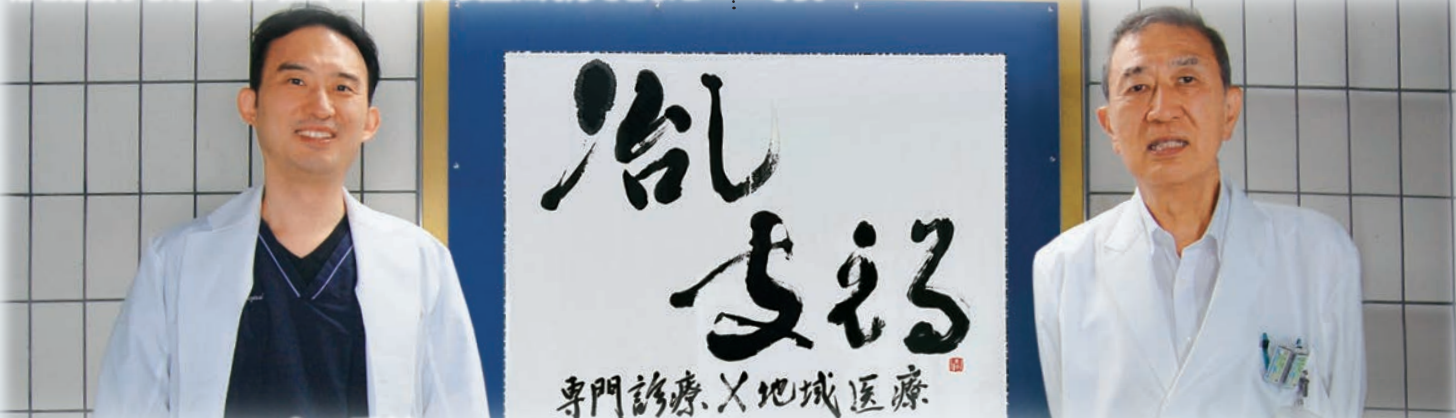 治し
支える
専門診療×地域医療